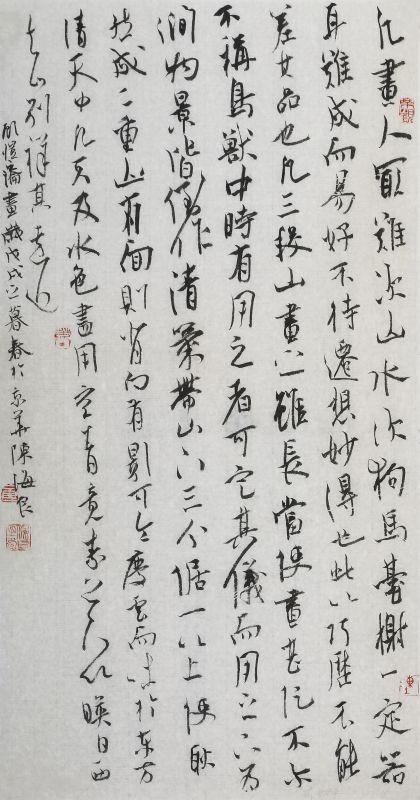 凡畫人最難次山水次狗馬臺榭一定器
耳難成而易好不待遷想妙得也此以巧歷不能
差其品也凡三段山畫之雖長當使畫甚促不尔
不稱鳥獸中時有用之者可定其儀而用之下為
澗物景皆倒作清氣帶山下三分倨一以上使耿
然成二重山有面則背向有影可令慶雲而吐於東方
清天中凡天及水色盡用空青竟素上下以暎日西
去山別詳其遠近
顧愷之畫戊戌之暮春於京華陳海良